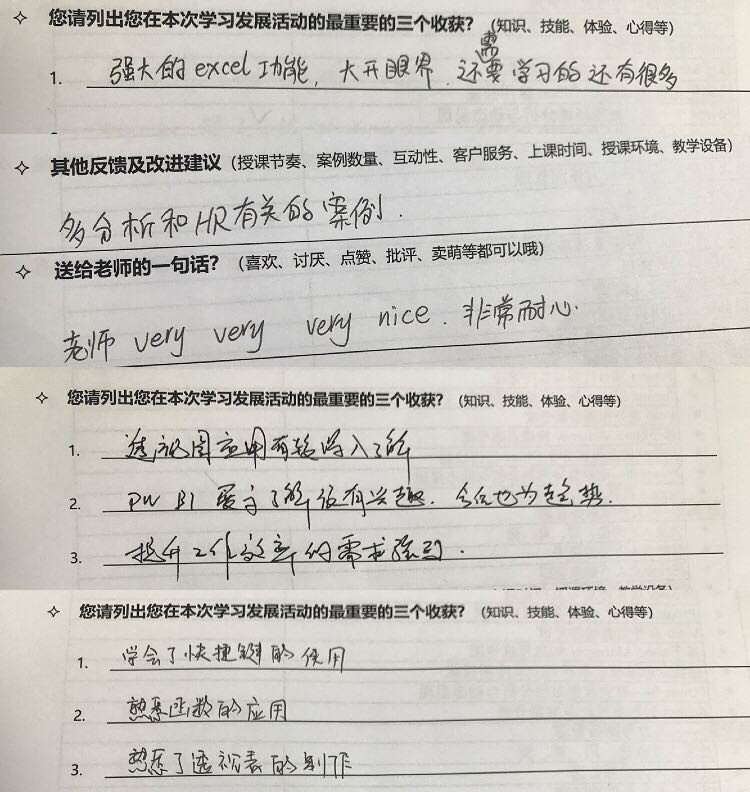 ✧ 您请列出您在本次学习发展活动的最重要的三个收获？（知识、技能、体验、心得等）
1. 强大的excel功能，大开眼界，还需要学习的还有很多
✧ 其他反馈及改进建议（授课节奏、案例数量、互动性、客户服务、上课时间、授课环境、教学设备）
多分析和HR有关的案例.
✧ 送给老师的一句话？（喜欢、讨厌、点赞、批评、卖萌等都可以哦）
老师 very very very nice. 非常耐心.
✧ 您请列出您在本次学习发展活动的最重要的三个收获？（知识、技能、体验、心得等）
1. 透视图应用有较深入了解
2. PW BI 更了解很有兴趣. 也为趋势.
3. 提升工作效率的需求强烈.
✧ 您请列出您在本次学习发展活动的最重要的三个收获？（知识、技能、体验、心得等）
1. 学会了快捷键的使用
2. 熟悉函数的应用
3. 熟悉了透视表的制作